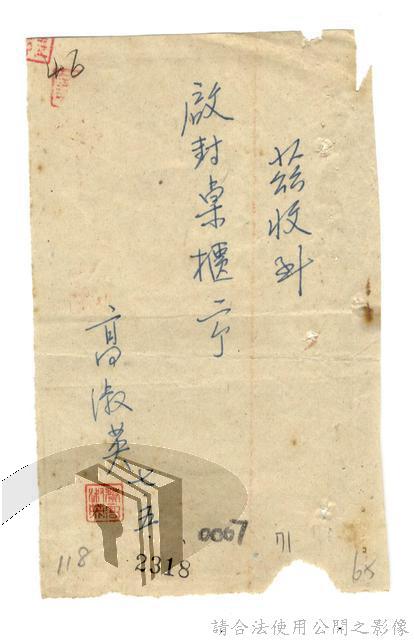 茲收到
啟封桌櫃二个
高淑英 七 五
46
118
2318
0067
71
68
請合法使用公開之影像